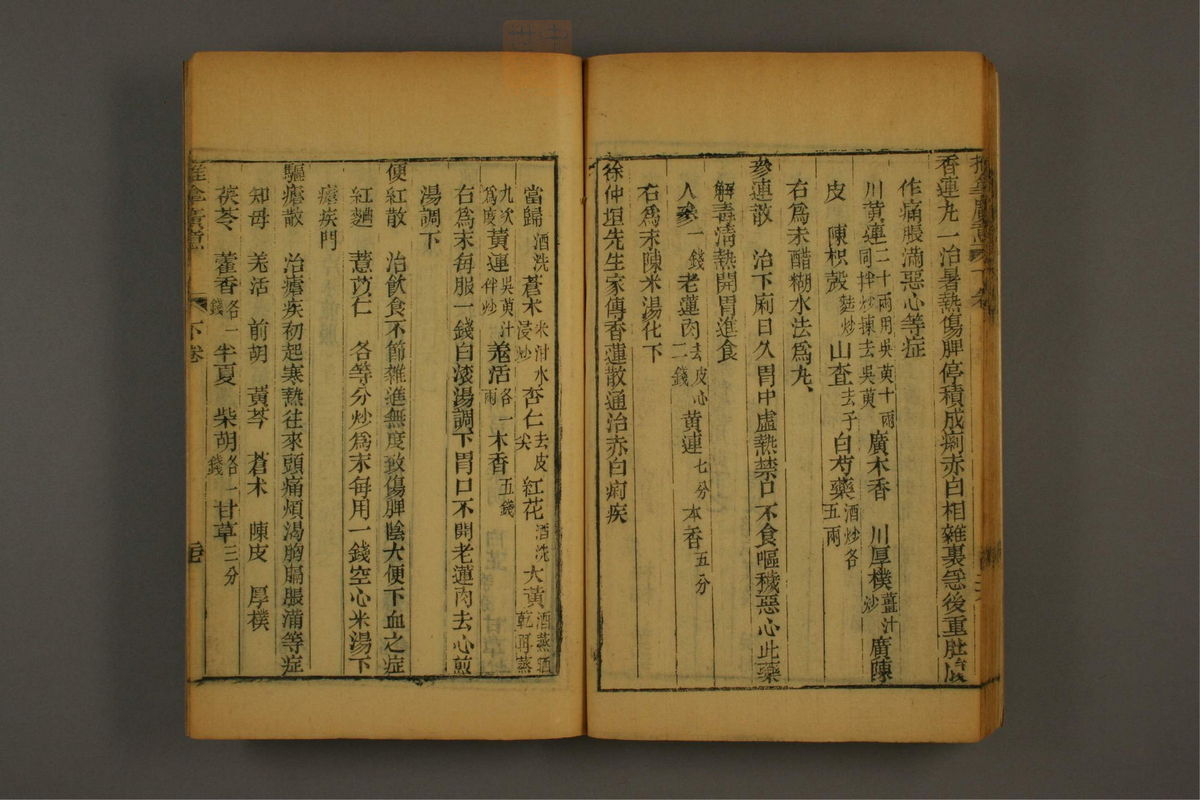 推拿廣意 下卷
香連丸 治暑熱傷脾停積成痢赤白相雜裏急後重肚腹
作痛脹滿惡心等症
川黃連二十兩用吳萸十兩同拌炒揀去吳萸 廣木香 川厚樸薑汁炒 廣陳
皮 陳枳殼麩炒 山查去子 白芍藥酒炒各五兩
右爲末醋糊水法爲丸、
參連散 治下痢日久胃中虛熱禁口不食嘔穢惡心此藥
解毒清熱開胃進食
人參一錢 老蓮肉去皮心二錢 黃連七分 木香五分
右爲末陳米湯化下
徐仲垣先生家傳香蓮散通治赤白痢疾
當歸酒洗 蒼术米泔水浸炒 杏仁去皮尖 紅花酒洗 大黃酒蒸晒乾再蒸
九次爲度 黃連吳萸汁伴炒 羌活各一兩 木香五錢
右爲末每服一錢白滾湯調下胃口不開老蓮肉去心煎
湯調下
便紅散 治飲食不節雜進無度致傷脾陰大便下血之症
紅麯 薏苡仁 各等分炒爲末每用一錢空心米湯下
瘧疾門
驅瘧散 治瘧疾初起寒熱往來頭痛煩渴胸膈脹滿等症
知母 羌活 前胡 黃芩 蒼术 陳皮 厚樸
茯苓 藿香各一錢 半夏 柴胡各一錢 甘草三分
推拿廣意 下卷